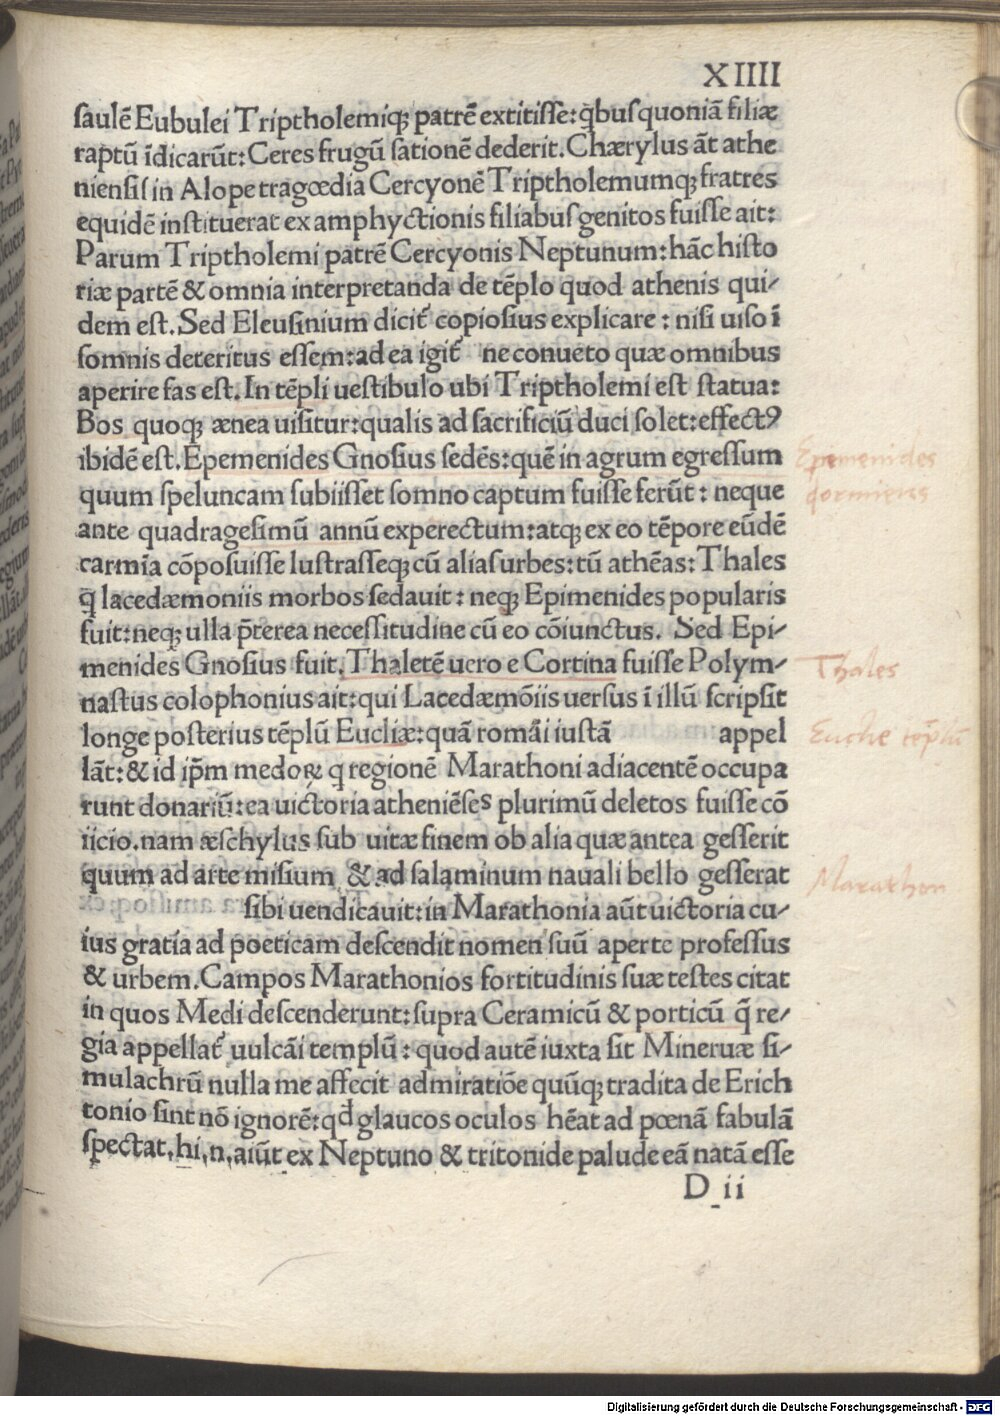 XIIII
ſaulē Eubulei Triptholemiq; patrē extitiſſe: q̄buſ quoniā filiæ
raptū īdicarūt: Ceres frugū ſationē dederit. Chærylus āt athe
nienſiſ in Alope tragœdia Cercyonē Triptholemumq; fratres
equidē inſtituerat ex amphyctionis filiabuſ genitos fuiſſe ait:
Parum Triptholemi patrē Cercyonis Neptunum: hāc hiſto
riæ partē & omnia interpretanda de tēplo quod athenis qui⸗
dem eſt. Sed Eleuſinium dicit᷑ copioſius explicare: niſi uiſo ī
ſomnis deteritus eſſem: ad ea igit᷑ ne conueto quæ omnibus
aperire fas eſt. In tēpli ueſtibulo ubi Triptholemi eſt ſtatua:
Bos quoq; ænea uiſitur: qualis ad ſacrificiū duci ſolet: effectꝰ
ibidē eſt. Epemenides Gnoſius ſedēs: quē in agrum egreſſum
Epemenides
quum ſpeluncam ſubiiſſet ſomno captum fuiſſe ferūt: neque
dormiens
ante quadrageſimū annū experectum: atq; ex eo tēpore eūdē
carmīa cōpoſuiſſe luſtraſſeq; cū aliaſ urbes: tū athēas: Thales
q̄ lacedæmoniis morbos ſedauit: neq; Epimenides popularis
fuit: neq; ulla p̄terea neceſſitudine cū eo cōiunctus. Sed Epi⸗
menides Gnoſius fuit. Thaletē uero e Cortina fuiſſe Polym⸗
Thales
naſtus colophonius ait: qui Lacedæmōiis uerſus ī illū ſcripſit
longe poſterius tēplū Eucliæ: quā romāi iuſtā appel
Eucliæ tēplū
lāt: & id ip̄m medoꝝ q regionē Marathoni adiacentē occupa
runt donariū: ea uictoria atheniēſes plurimū deletos fuiſſe cō
iicio. nam æſchylus ſub uitæ finem ob alia quæ antea geſſerit
quum ad arte miſium & ad ſalaminum nauali bello geſſerat
Marathon
ſibi uendicauit: in Marathonia aūt uictoria cu⸗
ius gratia ad poeticam deſcendit nomen ſuū aperte profeſſus
& urbem. Campos Marathonios fortitudinis ſuæ teſtes citat
in quos Medi deſcenderunt: ſupra Ceramicū & porticū q̄ re⸗
gia appellat᷑ uulcāi templū: quod autē iuxta ſit Mineruæ ſi⸗
mulachrū nulla me affecit admiratiōe quūq; tradita de Erich
tonio ſint nō ignorē: qd glaucos oculos hēat ad pœnā fabulā
ſpectat. hi. n. aiūt ex Neptuno & tritonide palude eā natā eſſe
D ii
Digitalisierung gefördert durch die Deutsche Forschungsgemeinschaft - DFG